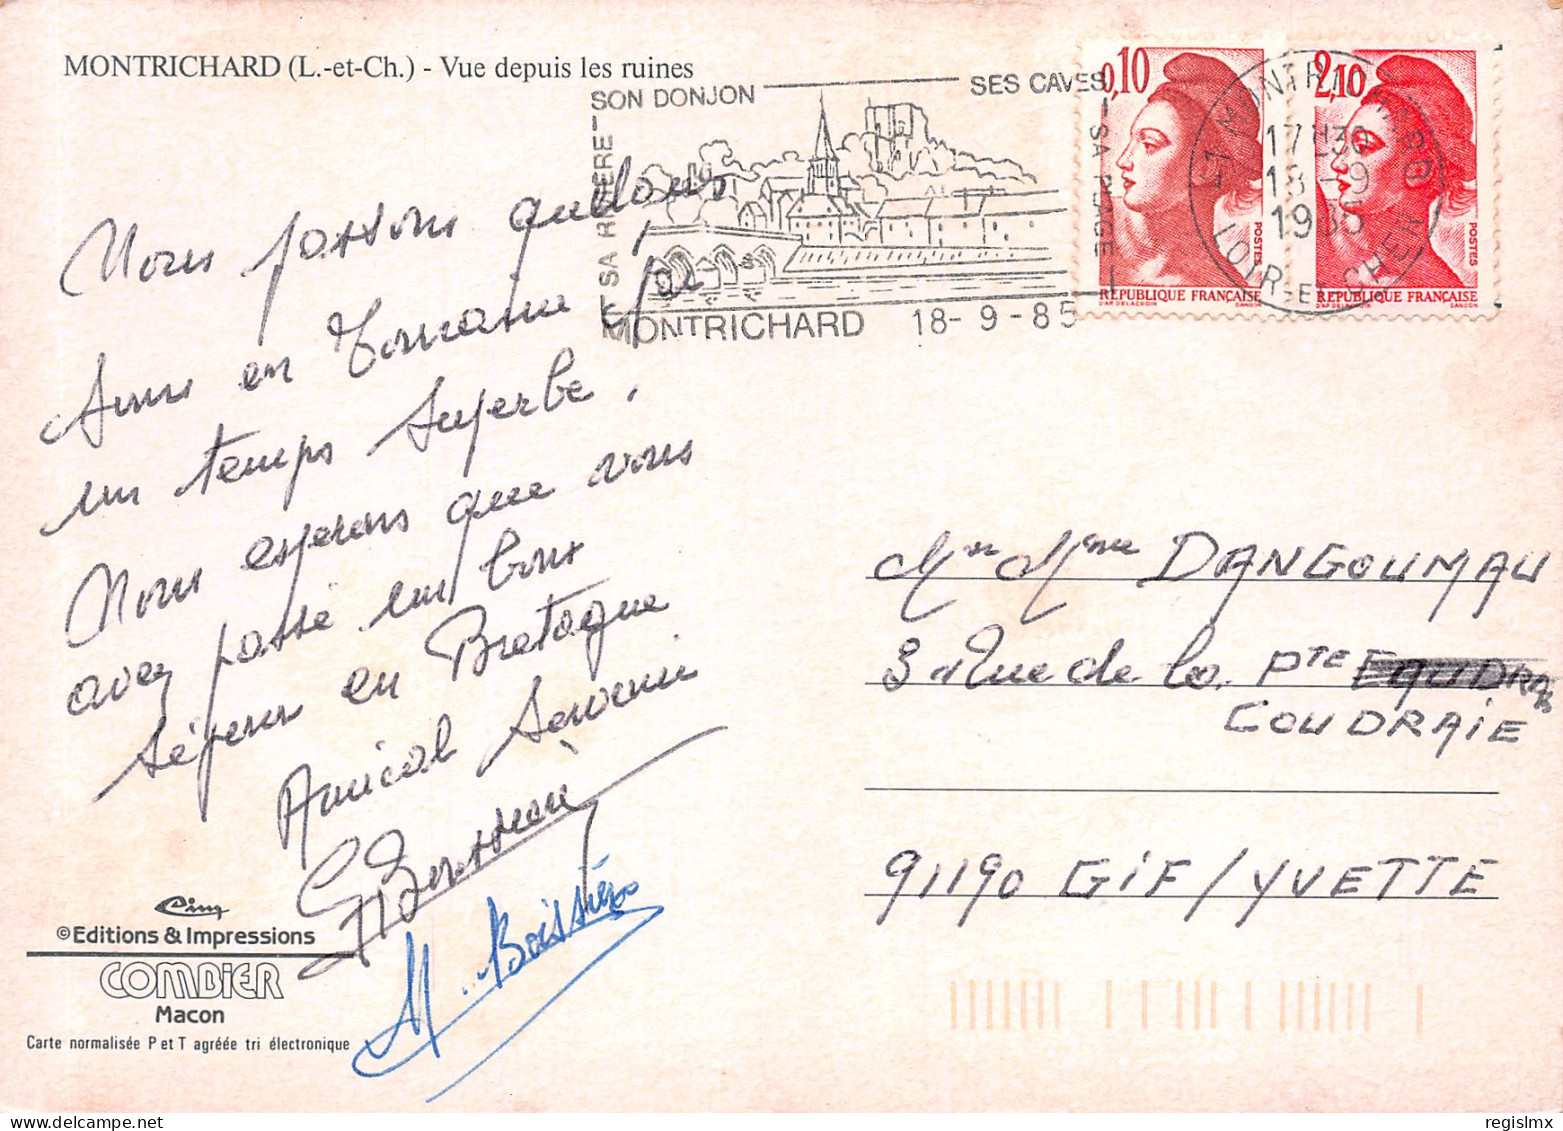 MONTRICHARD (L.-et-Ch.) - Vue depuis les ruines
SON DONJON
SES CAVES
SA RIVIERE
SA PLAGE
MONTRICHARD 18-9-85
0,10
POSTES
RÉPUBLIQUE FRANÇAISE
D'AP DELACROIX GANDON
2,10
POSTES
RÉPUBLIQUE FRANÇAISE
D'AP DELACROIX GANDON
41 MONTRICHARD
17H30
18-9
1985
LOIR-ET-CHER
Nous passons quelques
jours en Touraine par
un temps superbe,
Nous esperons que vous
avez passé un bons
séjour en Bretagne
Amical Souvenir
M. Boissière
Mr Mme DANGOUMAU
3 Rue de la Pte
COUDRAIE
91190 GIF / YVETTE
Cim
©Editions & Impressions
COMBIER
Macon
Carte normalisée P et T agréée tri électronique
regislmx